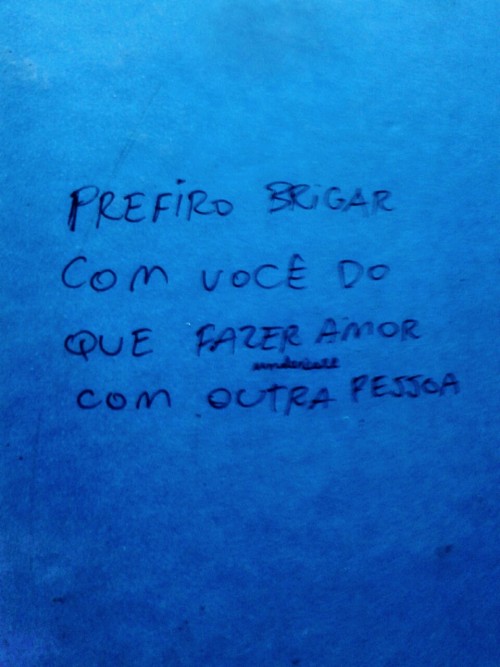 PREFIRO BRIGAR
COM VOCÊ DO
QUE FAZER AMOR
COM OUTRA PESSOA